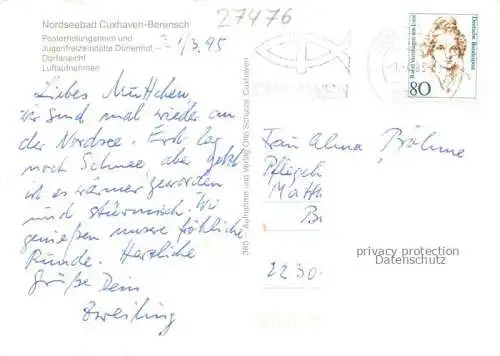 Nordseebad Cuxhaven-Berensch
Posterholungsheim und
Jugendfreizeitstätte Dünenhof
Dorfansicht
Luftaufnahmen
27476
1/3.95
Liebes Muttchen,
wir sind mal wieder an
der Nordsee. Erst lag
noch Schnee, aber jetzt
ist es wärmer geworden
und stürmisch. Wir
genießen unsere fröhliche
Runde. Herzliche
Grüße Dein
Aufnahme und Verlag Otto Schulze Cuxhaven
Deutsche Bundespost
80
Frau Alma Böhme
Pflegeh
Matth
Br
2230
privacy protection
Datenschutz